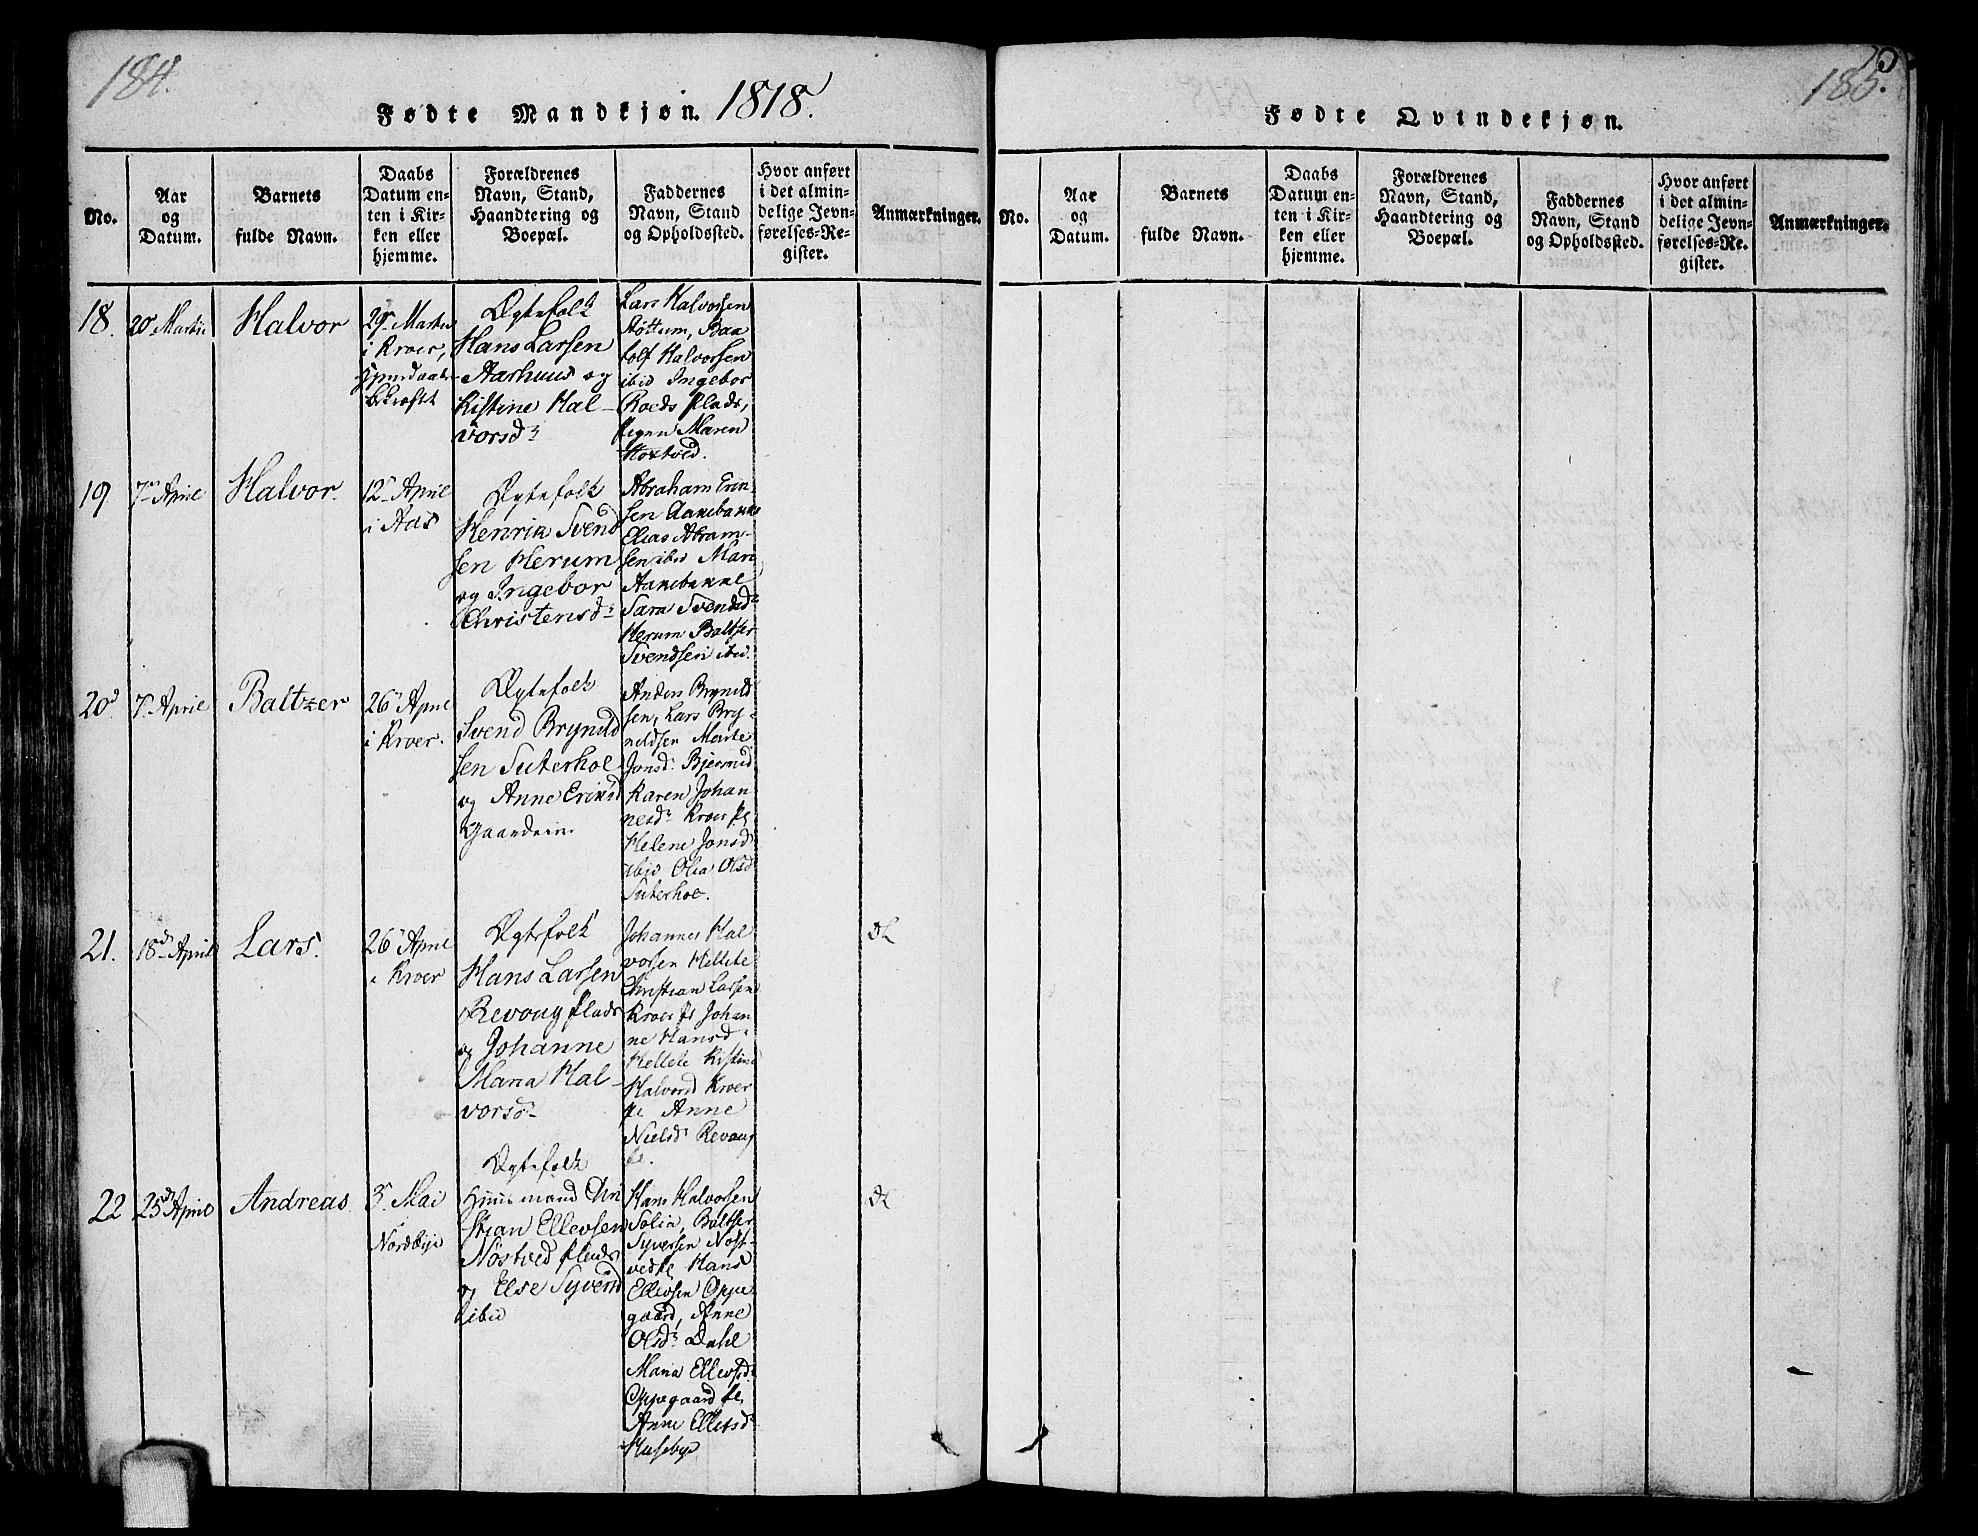 184.
Fødte Mandkjøn. 1818.
No.
Aar
og
Datum.
Barnets
fulde Navn.
Daabs
Datum en-
ten i Kir-
ken eller
hjemme.
Forældrenes
Navn, Stand,
Haandtering og
Boepæl.
Faddernes
Navn, Stand
og Opholdssted.
Hvor anført
i det almin-
delige Jevn-
førelses-Re-
gister.
Anmærkninger.
18.
20 Martii
Halvor
29 Martii
i Kroer,
hjemdaabs
bekræftt
Ægtefolk
Hans Larsen
Aarhuus og
Kistine Hal-
vorsdr
Lars Halvorsen
Støttum,
Halvorsen
ibid Ingebor
Roeds plads,
Pigen Maren
19
7 April
Halvor.
12 April
i Aas
Ægtefolk
Henrik Svend
sen Herum
og Ingebor
Christensdr
Abraham Erik-
sen Aakebakke
Elias Abram-
sen ibid Mari
Aakebakke
Sara Svendsdr
Herum Baltser
Svendsen ibid.
20
7 April
Baltzer
26 April
i Kroer.
Ægtefolk
Svend Brynild
sen Suterhoe
og Anne Eriksd
Gaardm.
Anders Brynild
sen, Lars Bry-
nildsen Merite
Jonsd: Bjerrud
Karen Johan
nesdr Kroer pl
Helene Jonsd
ibid Olia Olsd
Suterhoe.
21.
18 April
Lars.
26 April
i Kroer
Ægtefolk
Hans Larsen
Revoug plads
og Johanne
Maria Hal-
vorsdr
Johannes Hal
vorsen Hellete
Christian Larsen
Kroer pl Johan
ne Hansd
Hellete Kistine
Halvorsd Kroer
pl Anne
Nielsdr Revoug
pl.
22
25 April
Andreas.
3 Mai
Nordbye
Ægtefolk
Huusmand Chri
stian Ellevsen
Nöstved plads
og Else Syversd
ibid
Hans Halvorsen
Solia, Baltser
Syversen Nöst-
ved pl, Hans
Ellevsen Oppe
gaard, Anne
Olsdr Dahl
Maria Ellevsdr
Oppegaard pl,
Anne Ellefsdr
Husebye
185.
Fødte Qvindekjøn.
No.
Aar
og
Datum.
Barnets
fulde Navn.
Daabs
Datum en-
ten i Kir-
ken eller
hjemme.
Forældrenes
Navn, Stand,
Haandtering og
Boepæl.
Faddernes
Navn, Stand
og Opholdssted.
Hvor anført
i det almin-
delige Jevn-
førelses-Re-
gister.
Anmærkninger.